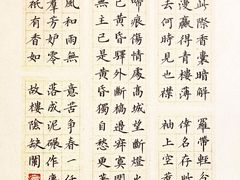 此際香囊暗解
去何時見也襟
羅帶輕分
倖名存
袖上空惹
啼痕傷情處高城望斷燈
已黃昏驛外斷橋邊寂寞開
主已是黃昏獨自愁更
風和雨無
羣芳妒零
祇有香如
意苦争春一任
落成泥碾作
故樓陰缺闌